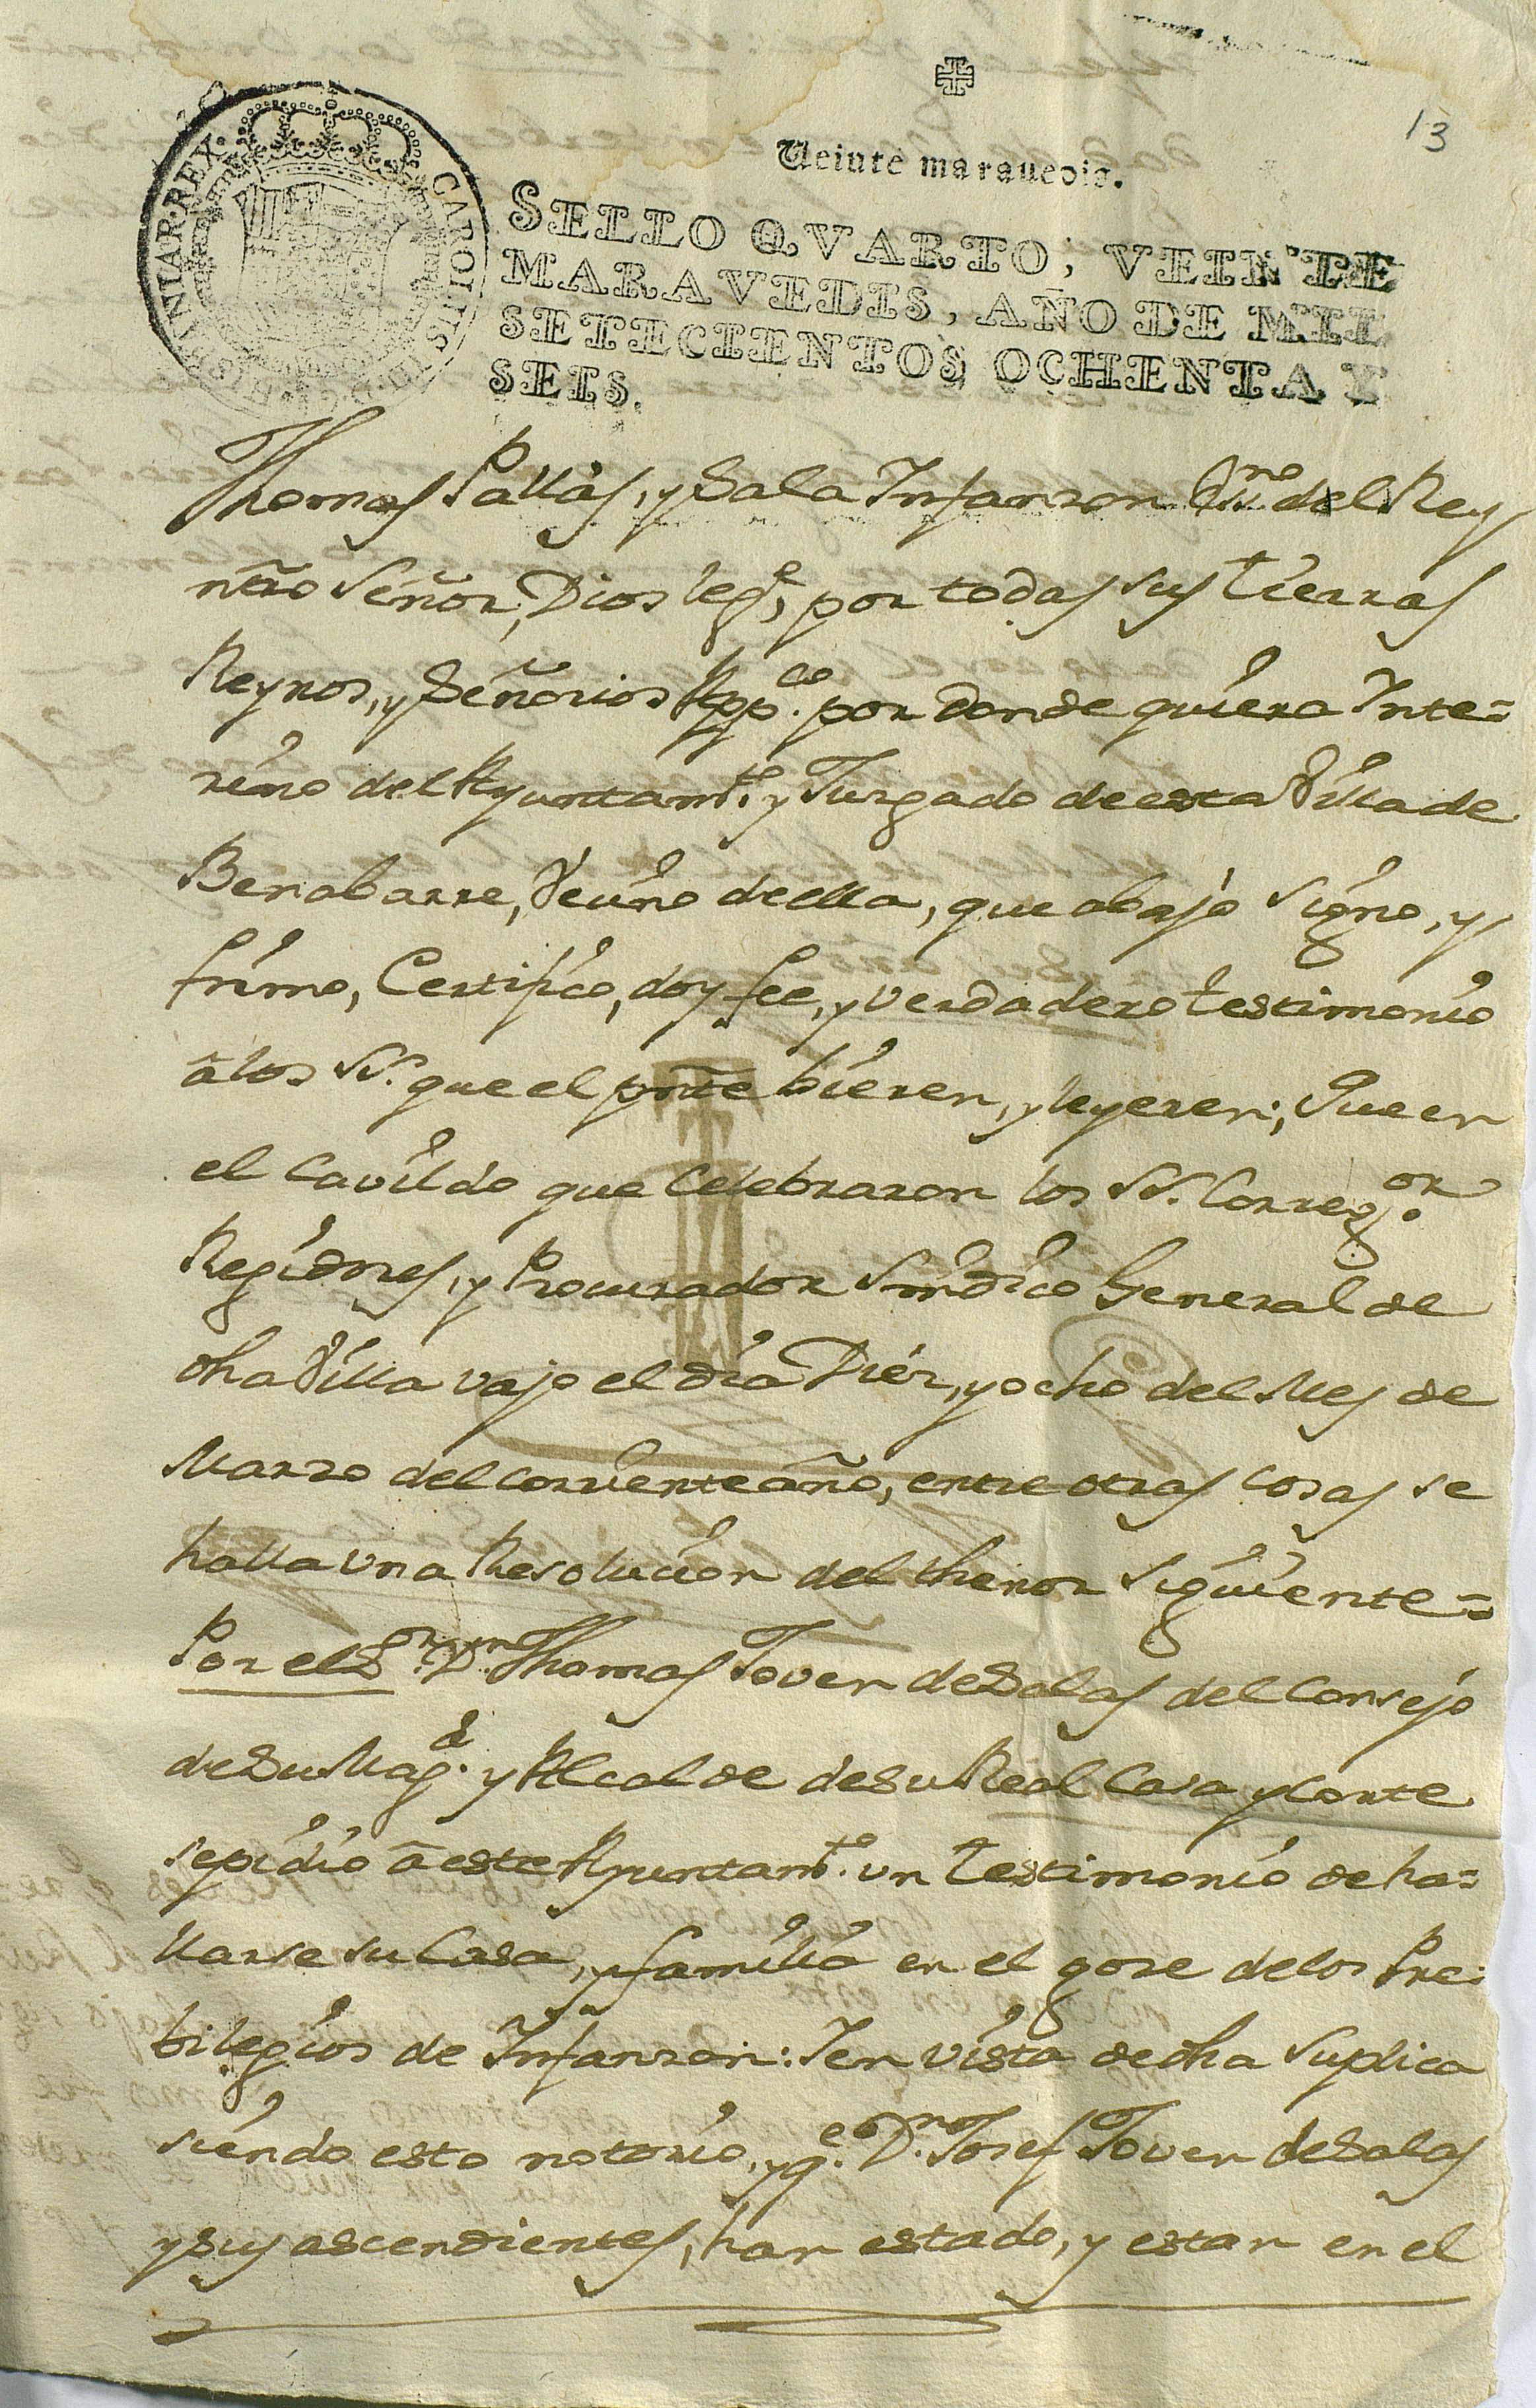 13
Veinte maravedis.
SELLO QVARTO, VEINTE
MARAVEDIS, AÑO DE MIL
SETECIENTOS OCHENTA Y
SEIS.
CAROLUS III D. G. HISPANIAR. REX.
Thomas Pallás, y Sala Infanzon Essno del Rey
ntro Señor, Dios lege, por todas sus tierras
Reynos, y Señorios Appco. por donde quiera Inte=
rino del Ayuntamto. y Juzgado de esta Villa de
Benabarre, Vecino de ella, que abajo Signo, y
firmo, Certifico, doy fee, y verdadero testimonio
â los SS. que el pnte bieren, y leyeren; Que en
el Cavildo que Celebraron los SS. Corregor.
Regidores, y Procurador Sindico General de
dha Villa vajo el dia Diez, y ocho del Mes de
Marzo del corriente año, entre otras cosas se
halla una Resolucion del thenor siguiente=
Por el Sor. Dn. Thomas Joven de Salas del Consejo
de Su Magd. y Alcalde de su Real Casa y Corte
se pidio â este Ayuntamto. un testimonio de ha=
llarse su Casa, y familia en el goze de los Pre=
bilegios de Infanzon: Y en vista de dha Suplica
siendo esto notorio, y qe. Dn. Josef Joven de Salas
y sus ascendientes, han estado, y estan en el